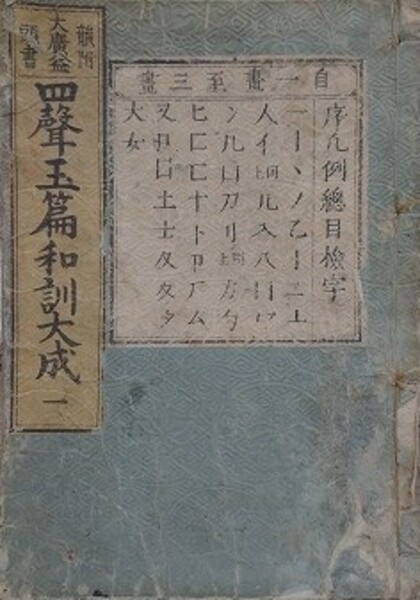 自一畫至三畫
序凡例總目檢字
一丨丶丿乙亅二亠
人亻上同儿入八冂冖
冫几凵刀刂上同力勹
匕匚匸十卜卩厂厶
又口囗土士夂夊夕
大女
韻附
大廣益
頭書
四聲玉篇和訓大成 一